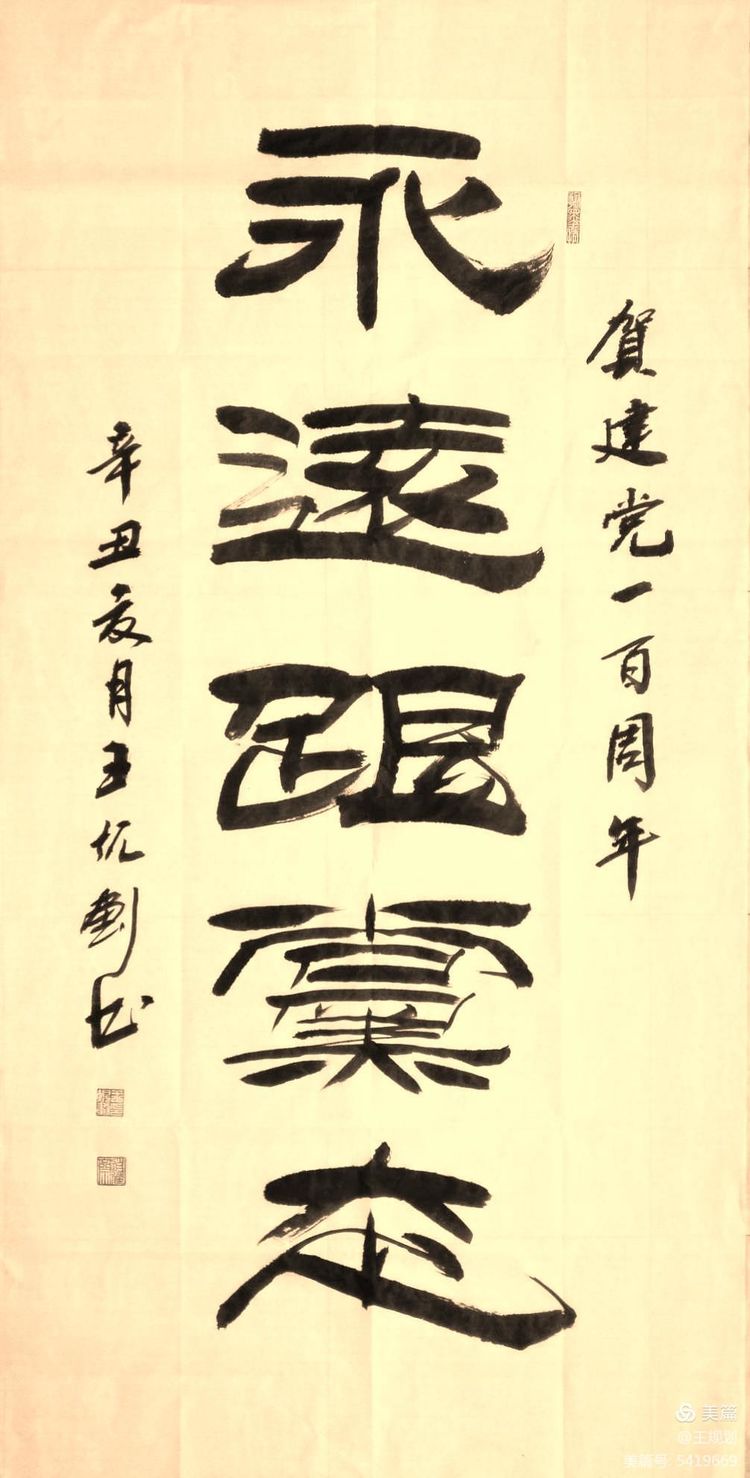 贺建党一百周年
永
遠
跟
黨
走
辛丑夏月王仉劃书
美篇
@王规划
美篇号: 5419669